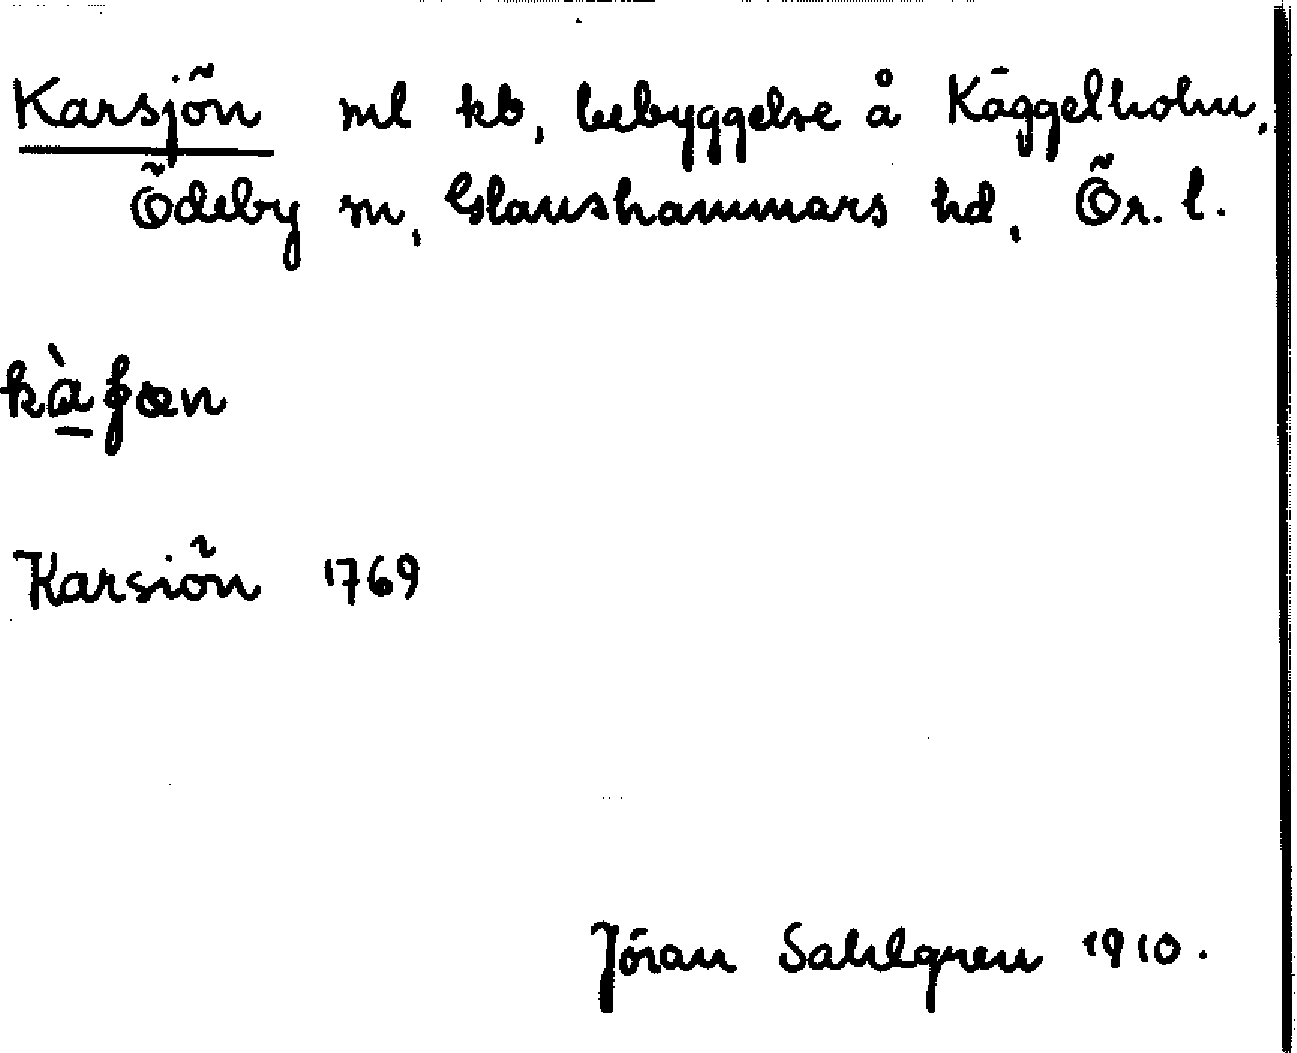 Karsjön ml kb, bebyggelse å Käggelholm,
Ödeby sn, Glanshammars hd, Ör. l.
kà̱ʃœn
Karsiön 1769
Jöran Sahlgren 1910.